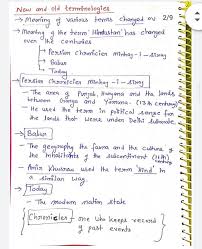 New and old terminologies
→ Meaning of various terms changed on 2/9.
→ Meaning of the term 'Hindustan' has changed
over the centuries
→ Persian Chronicler Minhaj-i-Siraj
→ Babur
→ Today
Persian Chronicler Minhaj-i-Siraj
- The area of Punjab, Haryana and the lands
between Ganga and Yamuna. (13th century)
- He used the term in political sense for
the lands that were under Delhi Sultanate.
→ Babur
- The geography, the fauna and the culture of
the inhabitants of the subcontinent (16th)
- Amir Khusrau used the term 'Hind' in
a similar way.
→ Today
- The modern nation state
Chronicler: one who keeps record
of past events